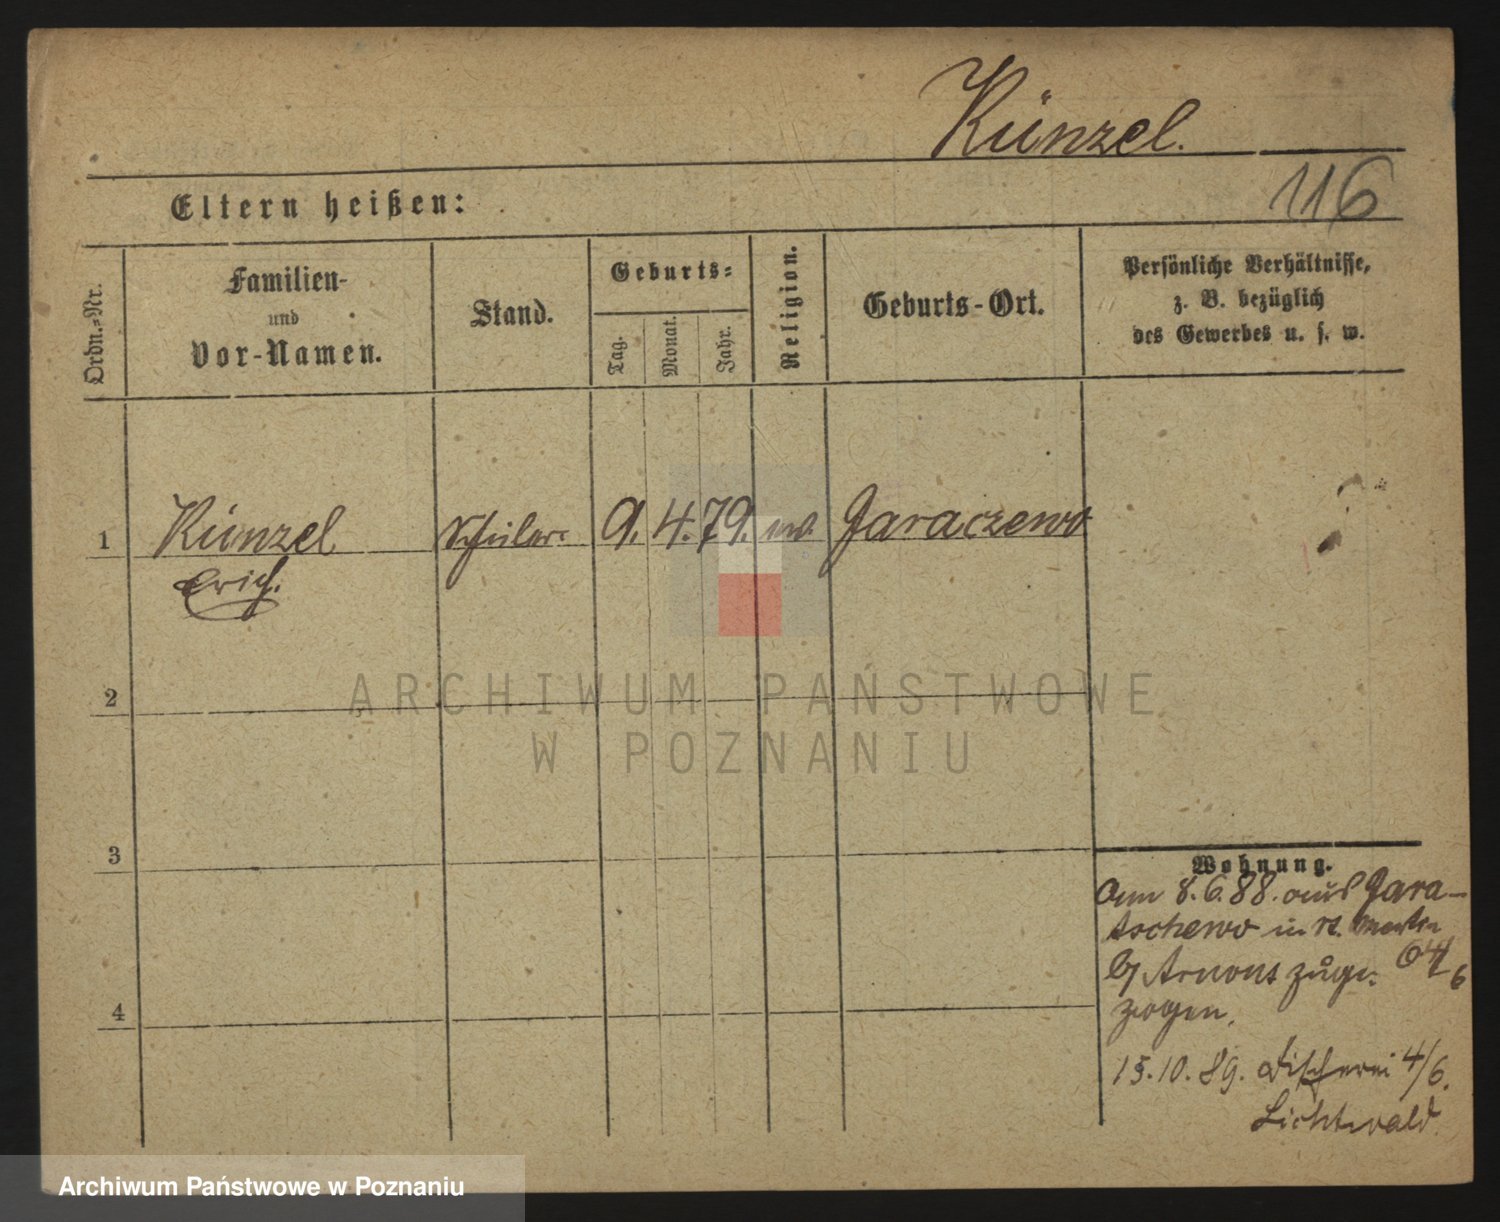 Künzel.
116
Eltern heißen:
Ordn.-Nr.
Familien-
und
Vor-Namen.
Stand.
Geburts-
Tag.
Monat.
Jahr.
Religion.
Geburts-Ort.
Persönliche Verhältnisse,
z. B. bezüglich
des Gewerbes u. s. w.
1 Künzel Schüler 9. 4. 79. Jaraczewo
Erich.
2
3
4
Wohnung.
Am 8.6.88. aus Jara-
tschewo in
b/ Arnous zuge-
zogen.
15.10.89. Fischerei 4/6.
Lichtwald.
ARCHIWUM PAŃSTWOWE
W POZNANIU
Archiwum Państwowe w Poznaniu